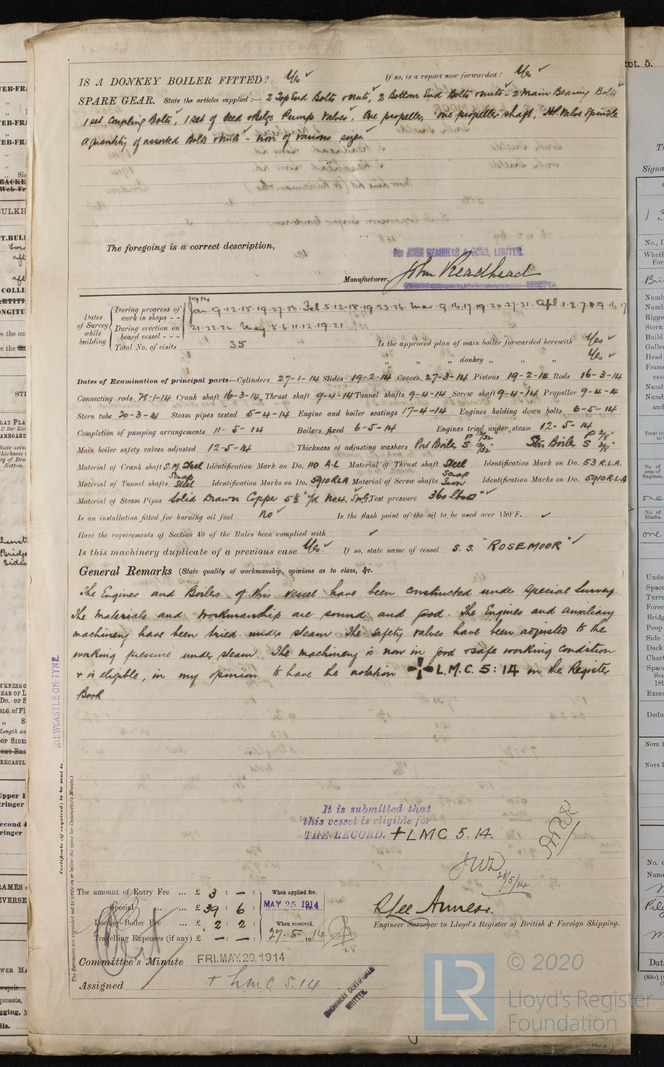 IS A DONKEY BOILER FITTED? Yes ✓ If so, is a report now forwarded? Yes ✓
SPARE GEAR. State the articles supplied:— 2 Top End Bolts & Nuts, 2 Bottom End Bolts & Nuts - 2 Main Bearing Bolts
1 set Coupling Bolts, 1 set of Feed & Bilge Pump Valves, One propeller, one propeller shaft, Valve Spindle
a quantity of assorted Bolts & Nuts - iron of various sizes
The foregoing is a correct description,
FOR JOHN READHEAD & SONS, LIMITED.
Manufacturer. John Readhead
1914
Dates of Survey while building
During progress of work in shops - - Jan. 9.12.15.19.27.28 Feb 5.12.18.19.23.26. Mar 9.16.17.19.20.27.31. Apl 1.2.7.8.9.16.17
During erection on board vessel - - - 21.22.24. May 5.6.11.12.19.21.
Total No. of visits 35 Is the approved plan of main boiler forwarded herewith Yes ✓
" " " donkey " " " Yes ✓
Dates of Examination of principal parts—Cylinders 27-1-14 Slides 19-2-14 Covers 27-3-14 Pistons 19-2-14 Rods 16-3-14
Connecting rods Crank shaft 16-3-14 Thrust shaft 9-4-14 Tunnel shafts 9-4-14 Screw shaft 9-4-14 Propeller 9-4-14
Stern tube 20-3-14 Steam pipes tested 5-4-14 Engine and boiler seatings 17-4-14 Engines holding down bolts 6-5-14
Completion of pumping arrangements 11-5-14 Boilers fixed 6-5-14 Engines tried under steam 12-5-14
Main boiler safety valves adjusted 12-5-14 Thickness of adjusting washers Port Boiler P S Boiler P S
Material of Crank shaft S.M. Steel Identification Mark on Do. 110 A.L Material of Thrust shaft Steel Identification Mark on Do. 53 R.L.A.
Material of Tunnel shafts Steel Identification Marks on Do. 5910 RLA Material of Screw shafts Scrap Iron Identification Marks on Do. 5910 R.L.A
Material of Steam Pipes Solid Drawn Copper Test pressure 360 lbs ✓
Is an installation fitted for burning oil fuel No ✓ Is the flash point of the oil to be used over 150°F. ✓
Have the requirements of Section 49 of the Rules been complied with ✓
Is this machinery duplicate of a previous case Yes ✓ If so, state name of vessel S.S. "ROSEMOOR" ✓
General Remarks (State quality of workmanship, opinions as to class, &c. )
The Engines and Boilers of this vessel have been constructed under Special Survey.
The Materials and workmanship are sound and good. The Engines and auxiliary
machinery have been tried under steam. The safety valves have been adjusted to the
working pressure under steam. The machinery is now in good & safe working condition
& is eligible, in my opinion to have the notation + L.M.C. 5:14 in the Register
Book
NEWCASTLE-ON-TYNE
It is submitted that
this vessel is eligible for
THE RECORD. + LMC 5.14.
JWD
28/5/14
The amount of Entry Fee ... £ 3 : — :
Special ... £ 39 : 6 :
Donkey Boiler Fee ... £ 2 : 2 :
Travelling Expenses (if any) £ — : — :
When applied for,
MAY 25 1914
When received,
27.5.1914
R Lee Anness.
Engineer Surveyor to Lloyd's Register of British & Foreign Shipping.
Committee's Minute FRI. MAY. 29. 1914
Assigned + LMC 5.14
MACHINERY CERTIFICATE
WRITTEN.
LR
© 2020
Lloyd's Register
Foundation